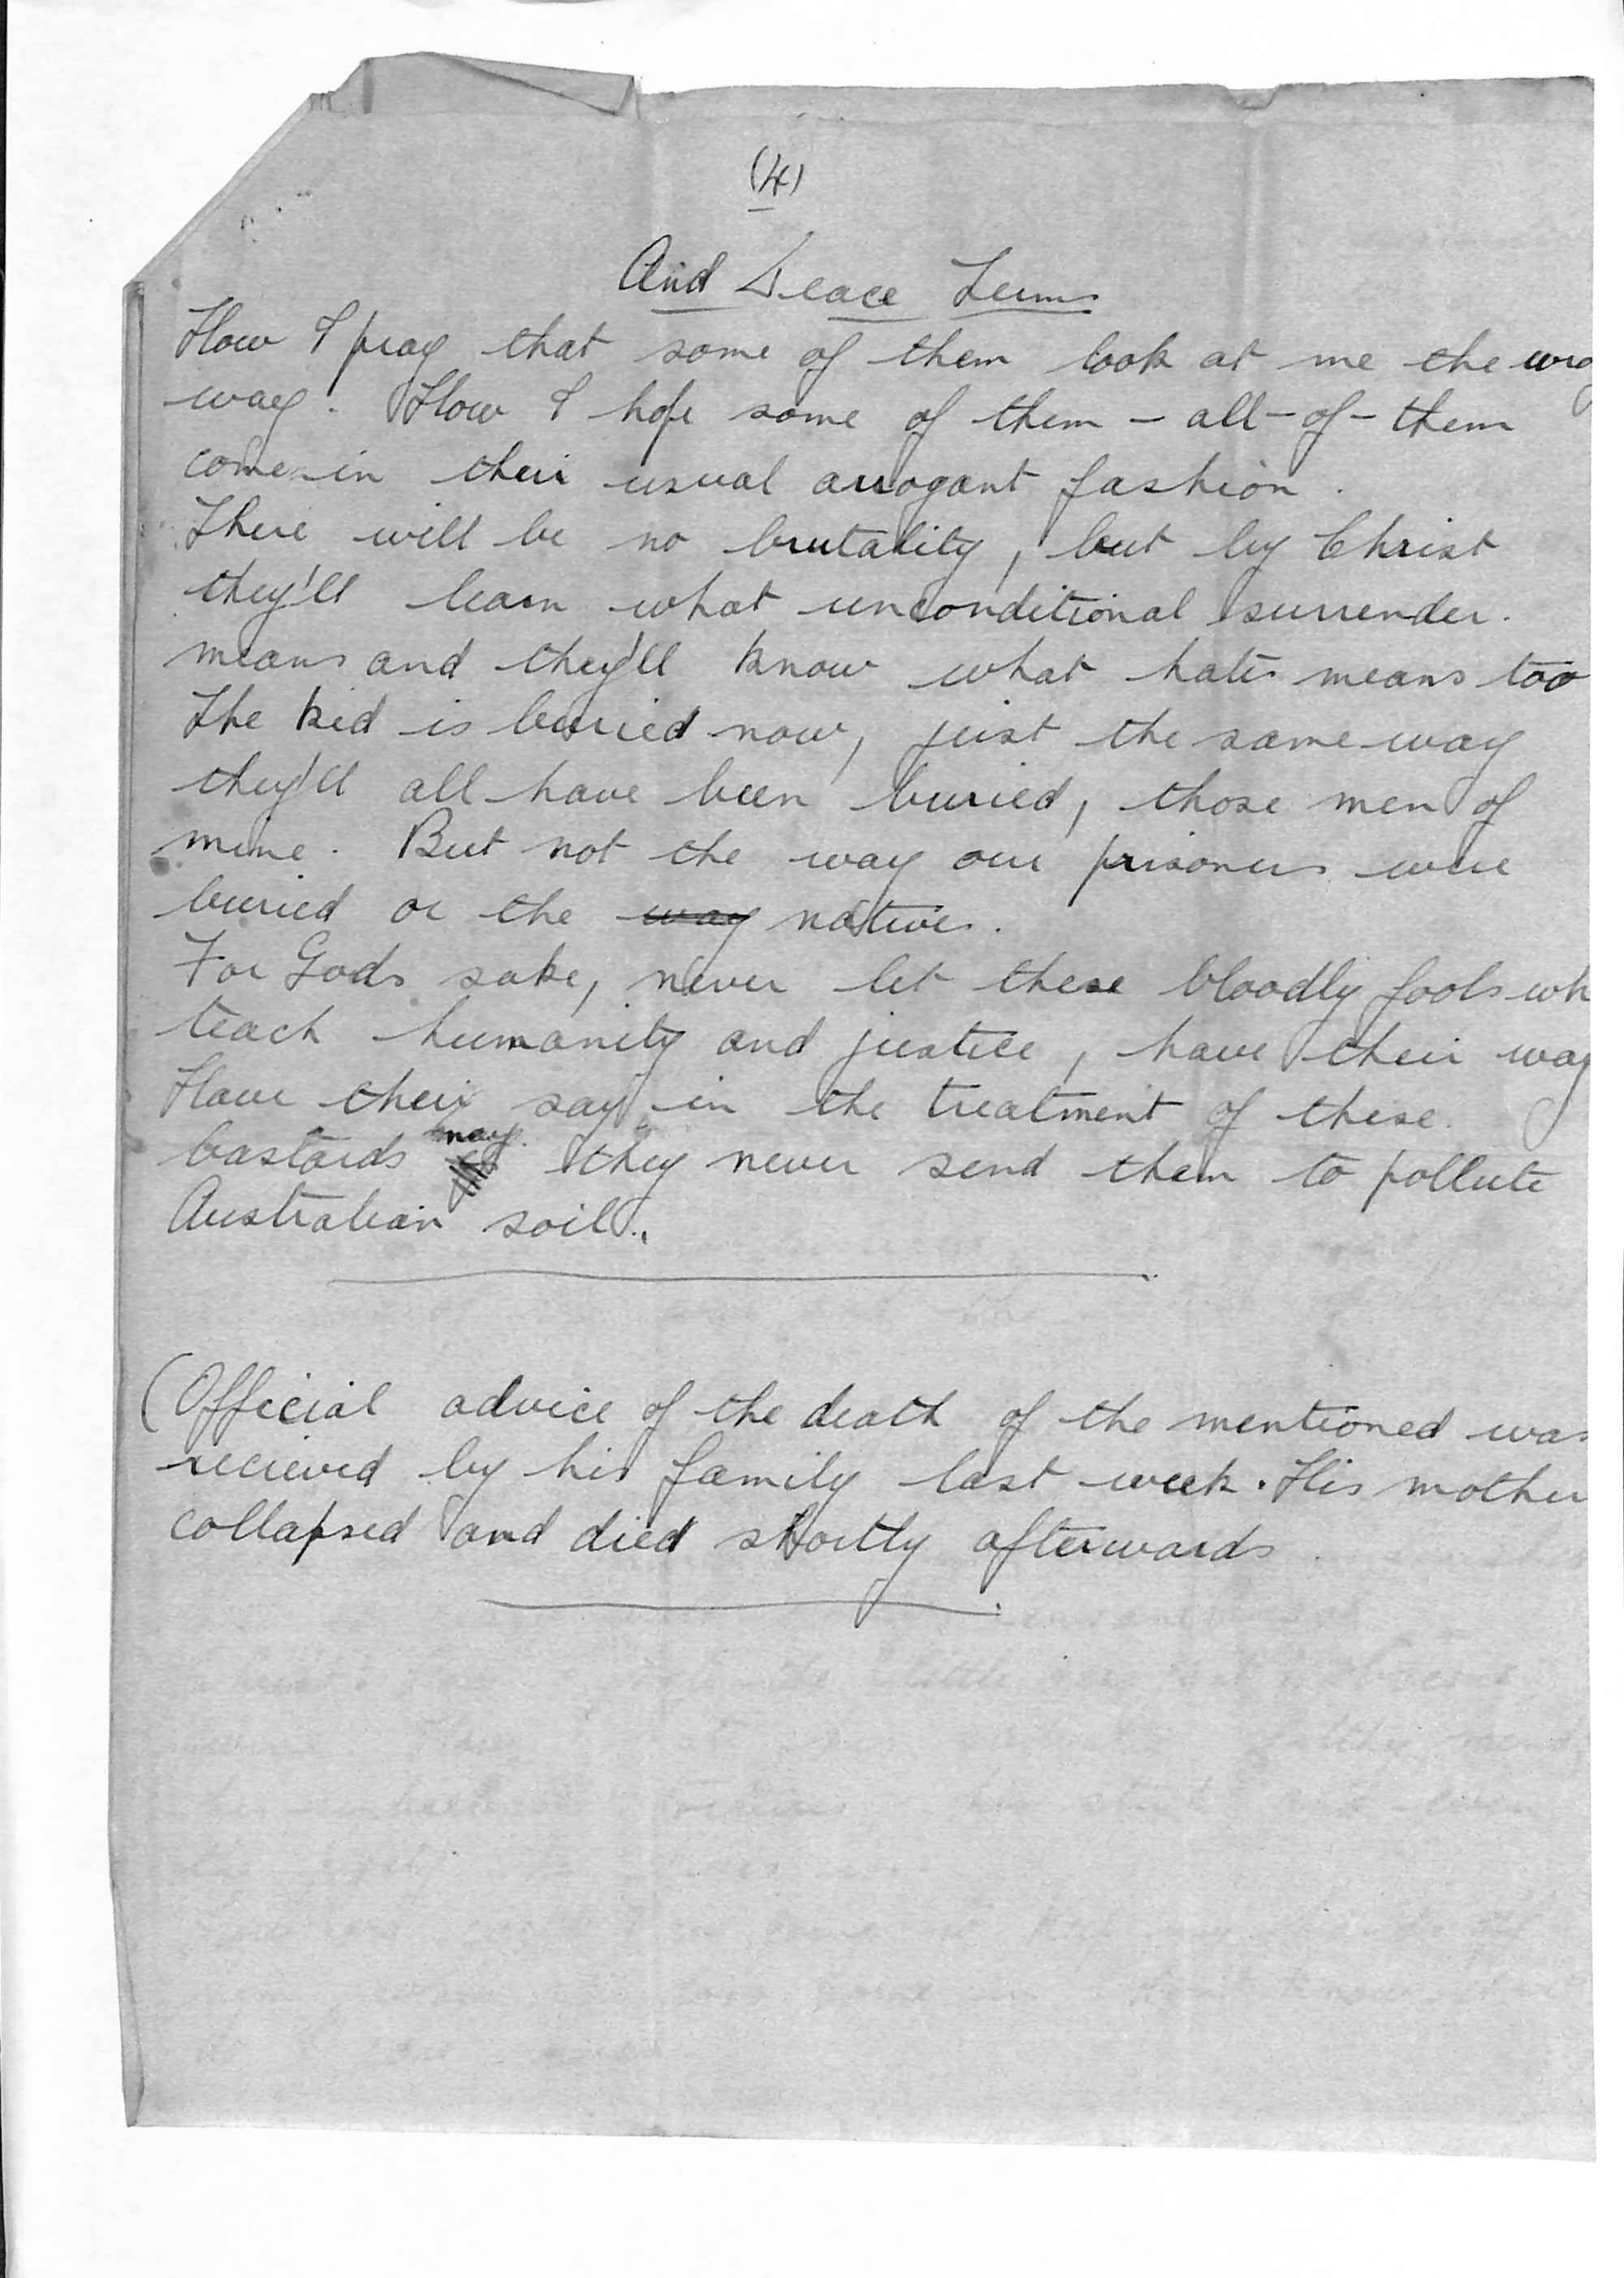 (4)
And Peace Terms
How I pray that some of them look at me the wro
way. How I hope some of them - all - of - them
come in their usual arrogant fashion.
There will be no brutality, but by Christ
they'll learn what unconditional surrender.
means and they'll know what hate means too
The kid is buried now, just the same way
they'll all have been buried, those men of
mine. But not the way our prisoners were
buried or the way natives.
For Gods sake, never let these bloodly fools wh
teach humanity and justice, have their way
Have their say in the treatment of these.
bastards may they never send them to pollute
Australian soil.
(Official advice of the death of the mentioned was
recieved by his family last week. His mother
collapsed and died shortly afterwards.